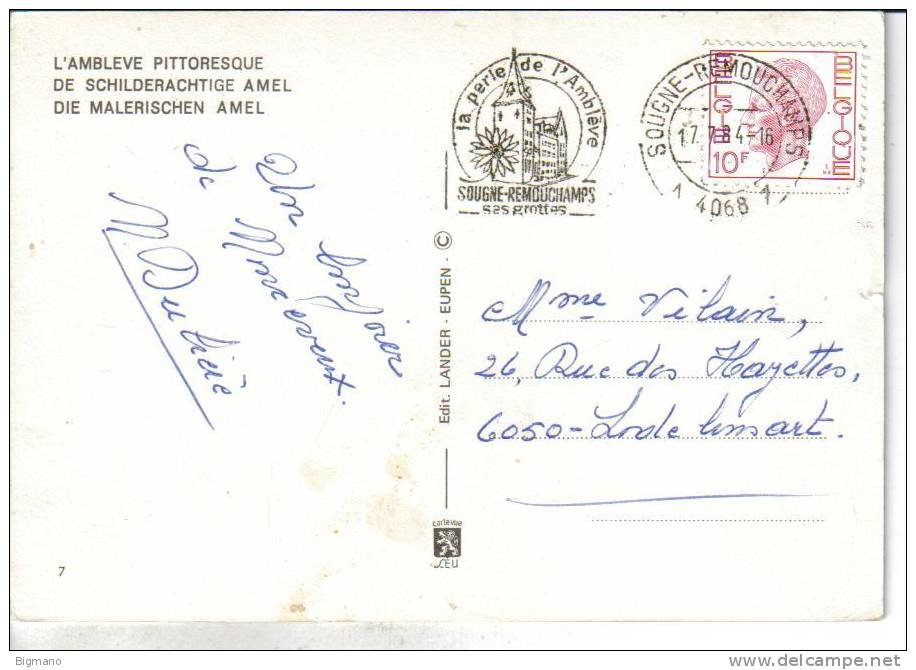 L'AMBLEVE PITTORESQUE
DE SCHILDERACHTIGE AMEL
DIE MALERISCHEN AMEL
la perle de l'Amblève
SOUGNE-REMOUCHAMPS
ses grottes
SOUGNE-REMOUCHAMPS
17.7.84-16
1 4068 1
BELGIQUE
BELGIE
10F
Mme Vilain,
26, Rue des Hayettes,
6050 - Lodelinsart.
de
Edit. LANDER - EUPEN - ©
cartevue
CEU
7
Bigmano
www.delcampe.net